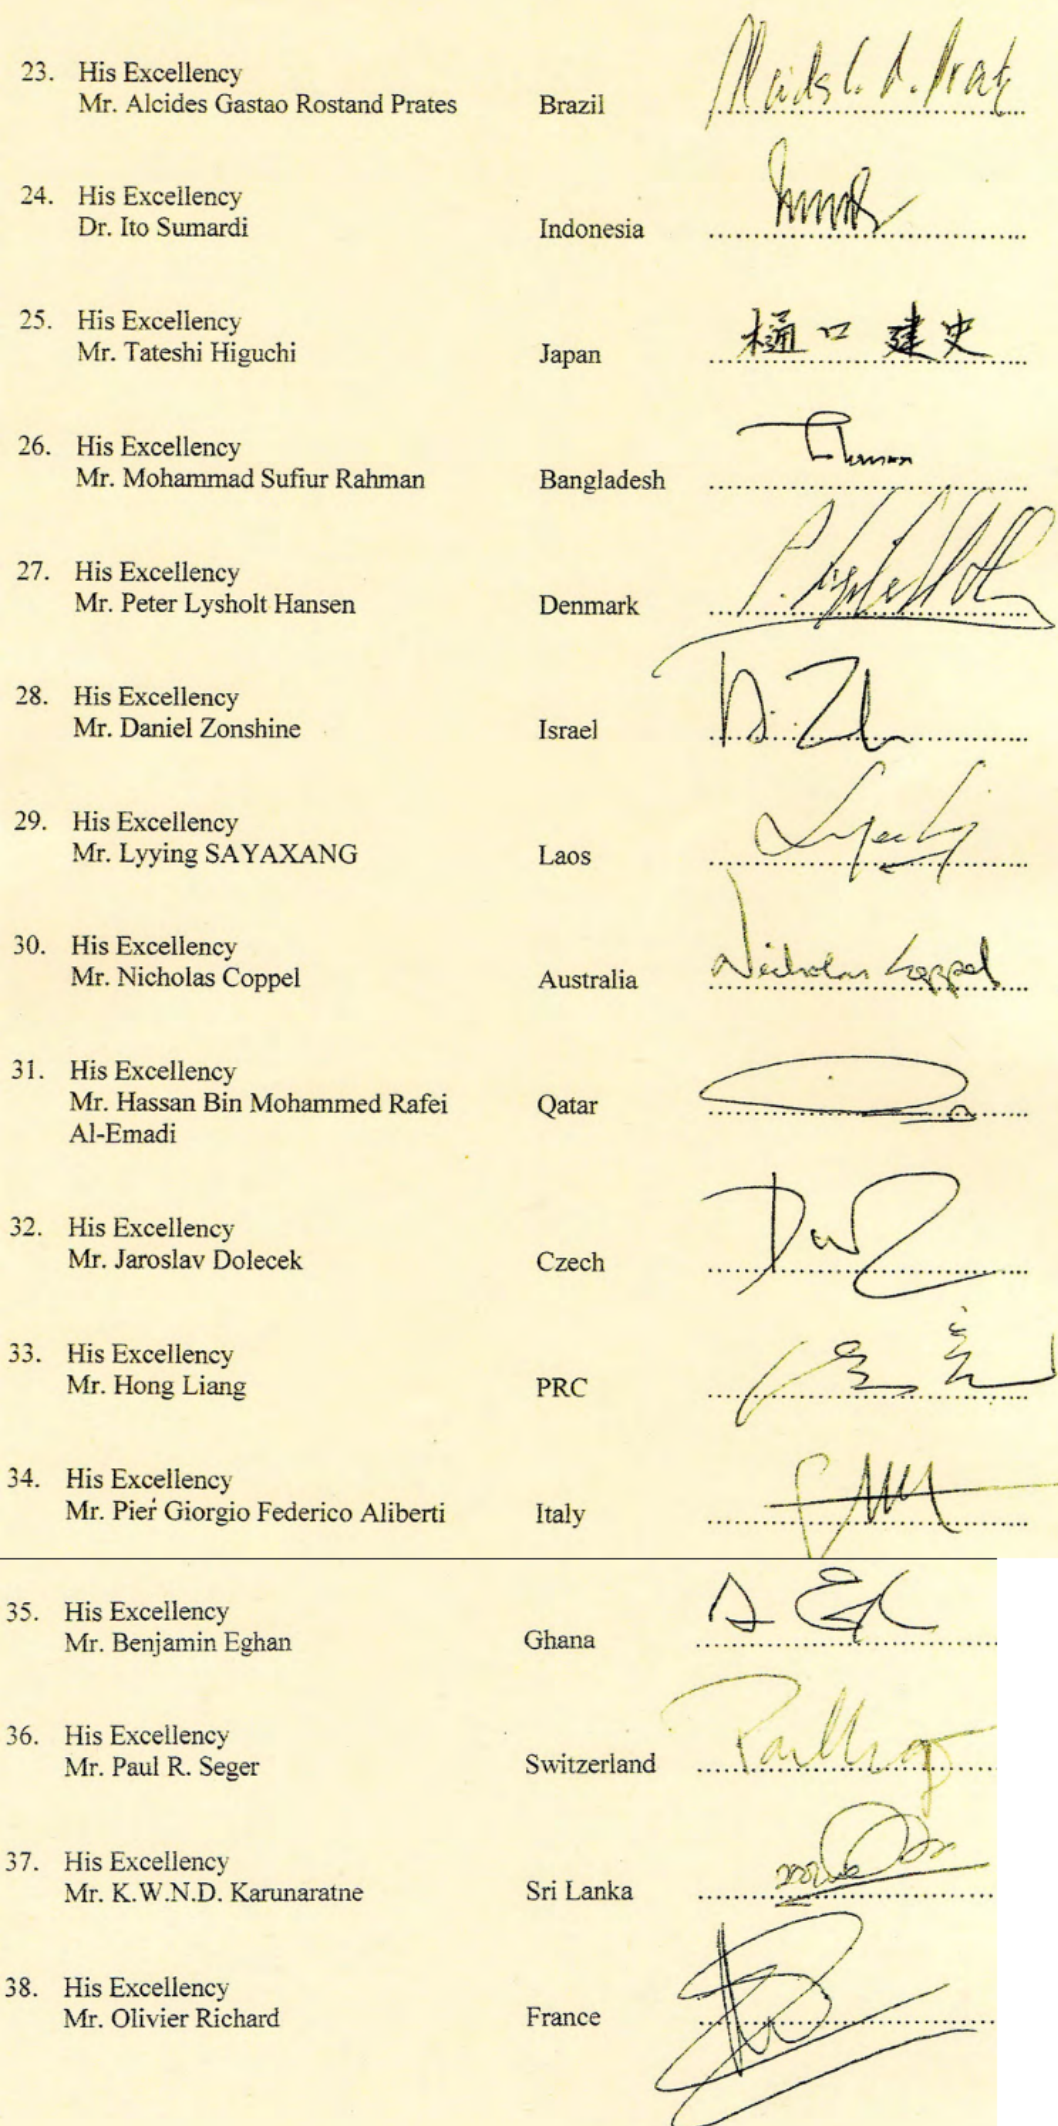 23. His Excellency
Mr. Alcides Gastao Rostand Prates Brazil
24. His Excellency
Dr. Ito Sumardi Indonesia
25. His Excellency
Mr. Tateshi Higuchi Japan 樋口 建史
26. His Excellency
Mr. Mohammad Sufiur Rahman Bangladesh
27. His Excellency
Mr. Peter Lysholt Hansen Denmark
28. His Excellency
Mr. Daniel Zonshine Israel
29. His Excellency
Mr. Lyying SAYAXANG Laos
30. His Excellency
Mr. Nicholas Coppel Australia Nicholas Coppel
31. His Excellency
Mr. Hassan Bin Mohammed Rafei Qatar
Al-Emadi
32. His Excellency
Mr. Jaroslav Dolecek Czech
33. His Excellency
Mr. Hong Liang PRC
34. His Excellency
Mr. Pier Giorgio Federico Aliberti Italy
35. His Excellency
Mr. Benjamin Eghan Ghana
36. His Excellency
Mr. Paul R. Seger Switzerland
37. His Excellency
Mr. K.W.N.D. Karunaratne Sri Lanka
38. His Excellency
Mr. Olivier Richard France